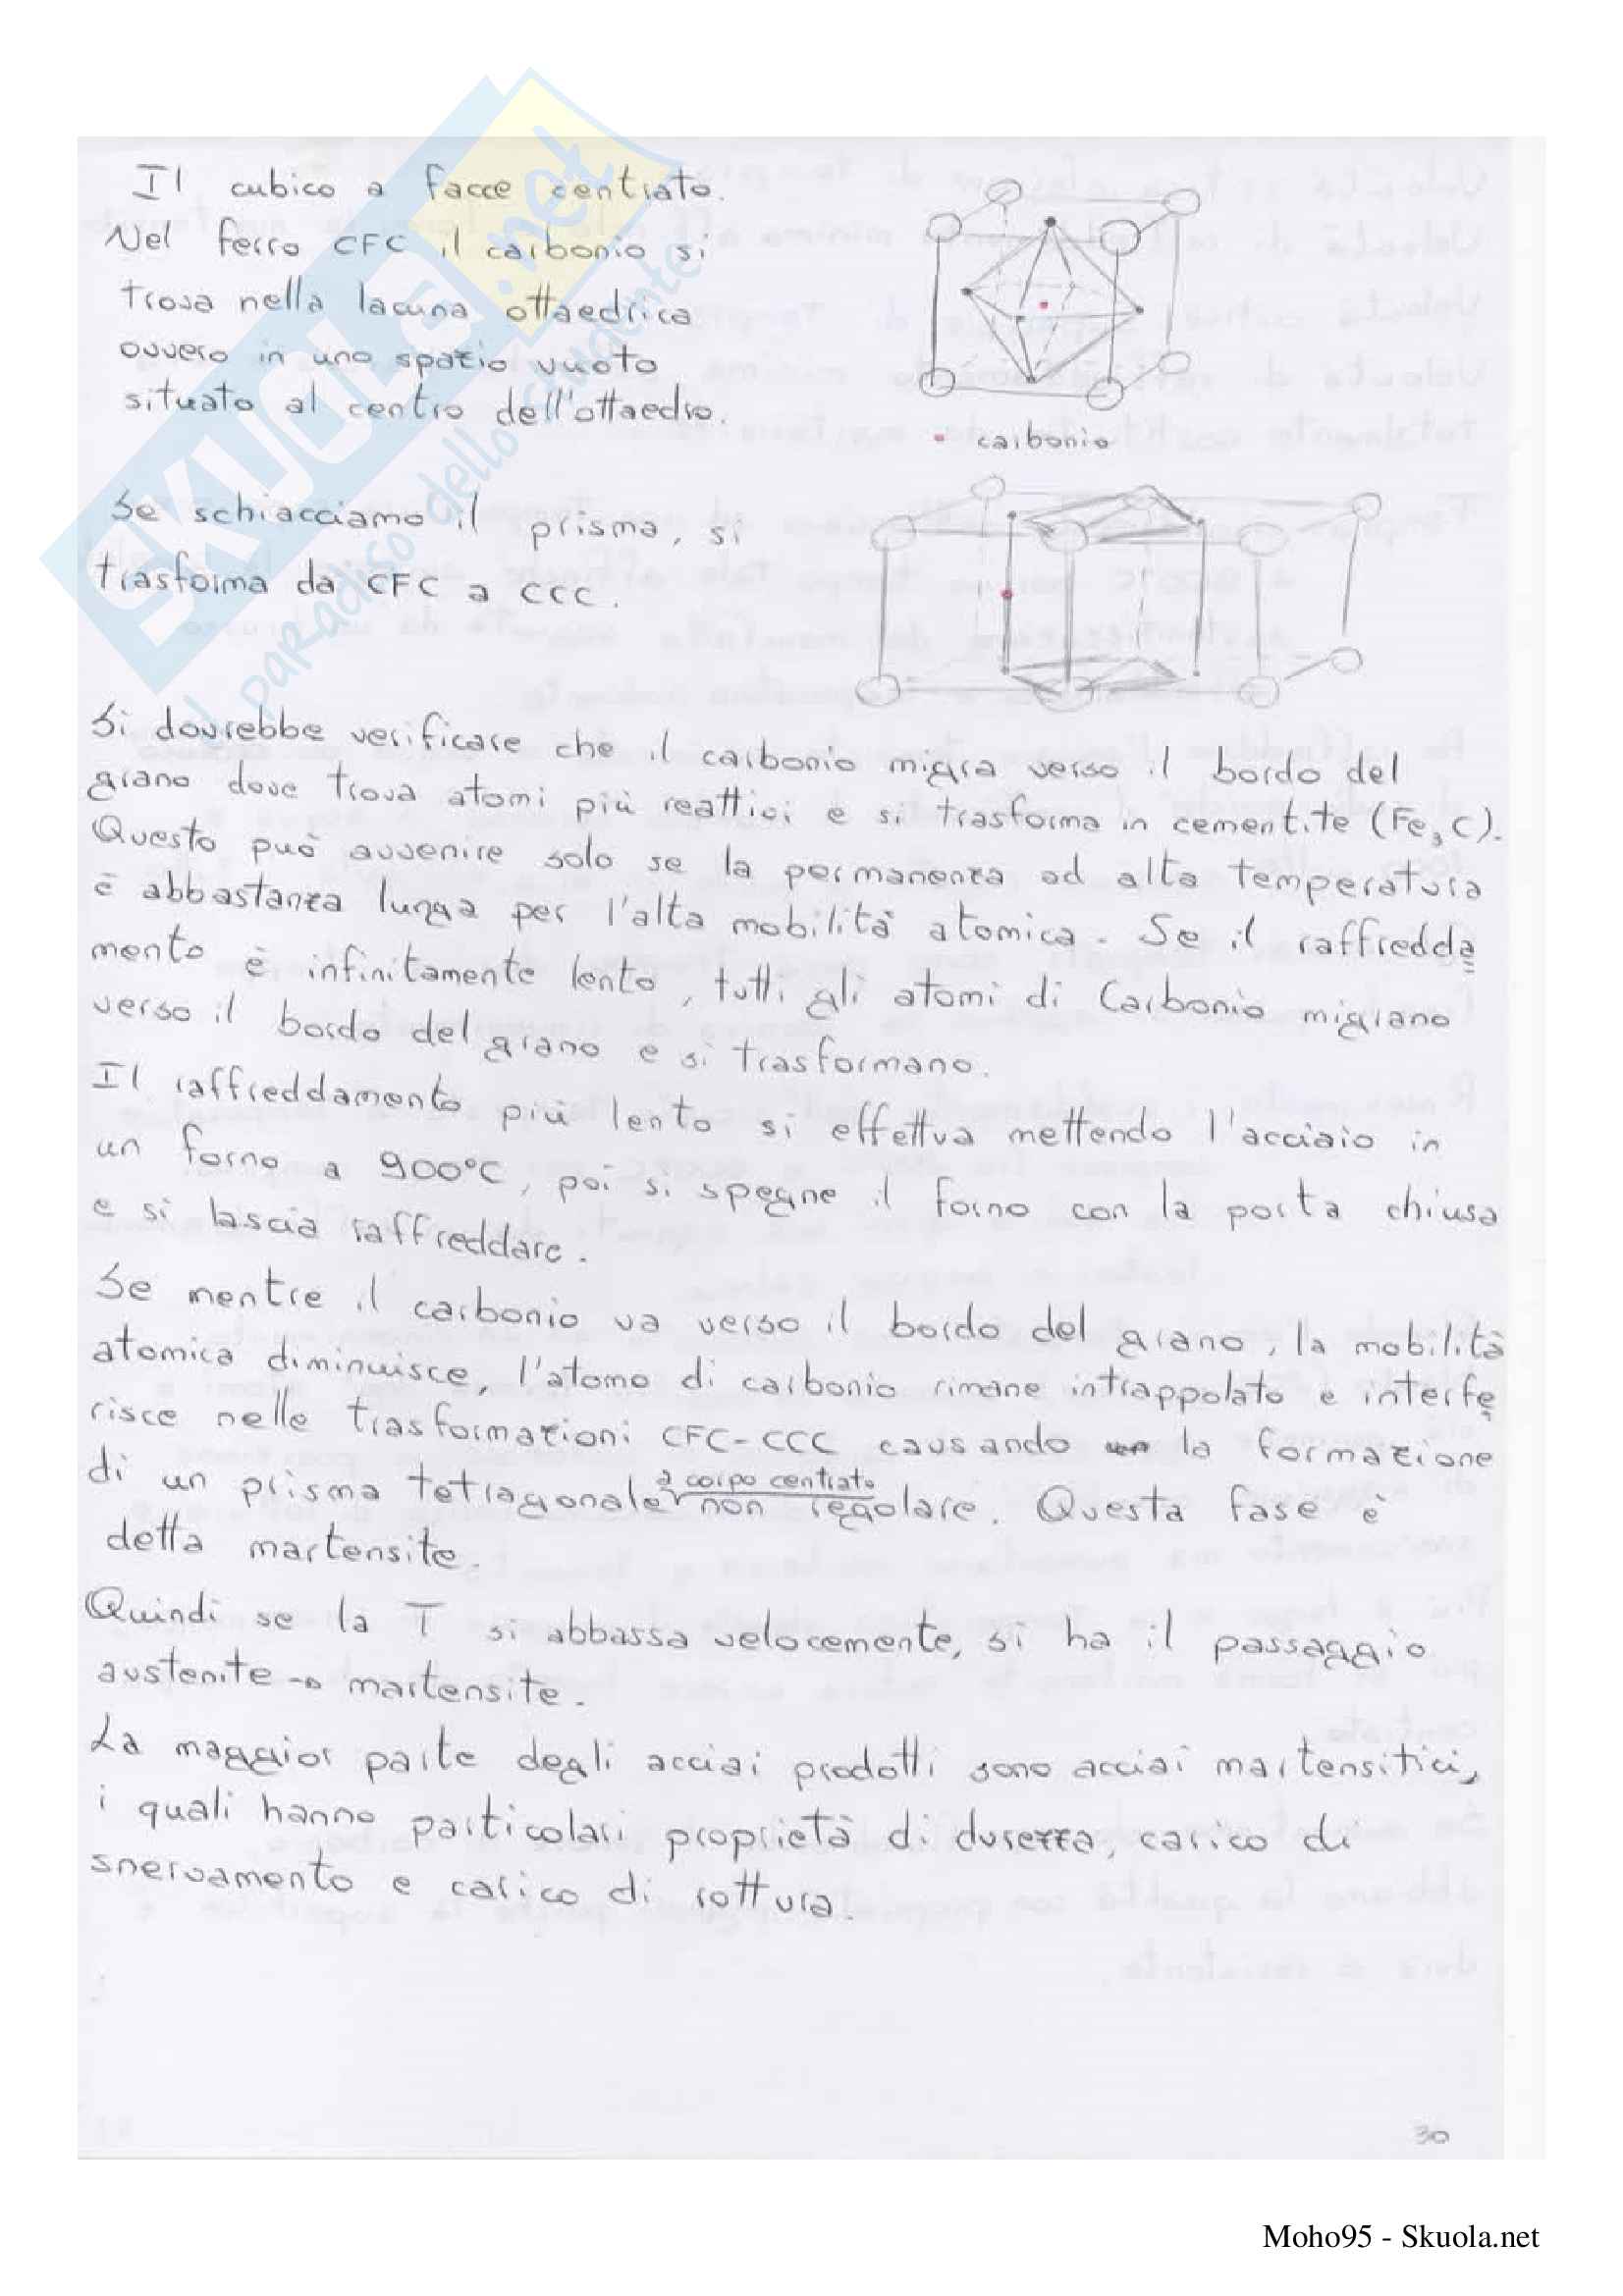 Il cubico a facce centrato.
Nel ferro CFC il carbonio si
trova nella lacuna ottaedrica
ovvero in uno spazio vuoto
situato al centro dell'ottaedro.
• carbonio
Se schiacciamo il prisma, si
trasforma da CFC a CCC.
Si dovrebbe verificare che il carbonio migra verso il bordo del
grano dove trova atomi più reattivi e si trasforma in cementite (Fe₃C).
Questo può avvenire solo se la permanenza ad alta temperatura
è abbastanza lunga per l'alta mobilità atomica. Se il raffredda=
mento è infinitamente lento, tutti gli atomi di Carbonio migrano
verso il bordo del grano e si trasformano.
Il raffreddamento più lento si effettua mettendo l'acciaio in
un forno a 900°C, poi si spegne il forno con la porta chiusa
e si lascia raffreddare.
Se mentre il carbonio va verso il bordo del grano, la mobilità
atomica diminuisce, l'atomo di carbonio rimane intrappolato e interfe=
risce nelle trasformazioni CFC-CCC causando la formazione
di un prisma tetragonale a corpo centrato non regolare. Questa fase è
detta martensite.
Quindi se la T si abbassa velocemente, si ha il passaggio
austenite → martensite.
La maggior parte degli acciai prodotti sono acciai martensitici,
i quali hanno particolari proprietà di durezza, carico di
snervamento e carico di rottura.
30
SKUOLA.net
il paradiso dello studente
Moho95 - Skuola.net